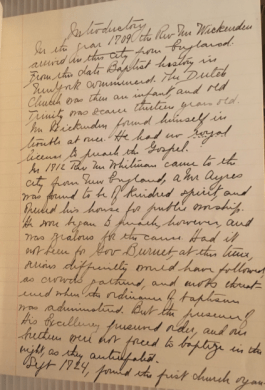 Introductory.
In the year 1709, the Rev Mr Wickenden
arrived in this city from England.
From this date Baptist history in
New York commenced. The Dutch
Church was then an infant and old
Trinity was scarce thirteen years old.
Mr Wickenden found himself in
trouble at once. He had no Royal
license to preach the Gospel.
In 1912 Rev Mr Whitman came to the
city from New England, a Mr Ayres
was found to be of kindred spirit and
opened his house for public worship.
He soon began to preach, however, and
was zealous for the cause. Had it
not been for Gov Burnet at this time,
serious difficulty would have followed,
as crowds gathered, and mobs threat-
ened when the ordinance of baptism
was administered. But the presence of
His Excellency preserved order, and our
brethren were not forced to baptize in the
night as they anticipated.
Sept 1724, found the first church organ